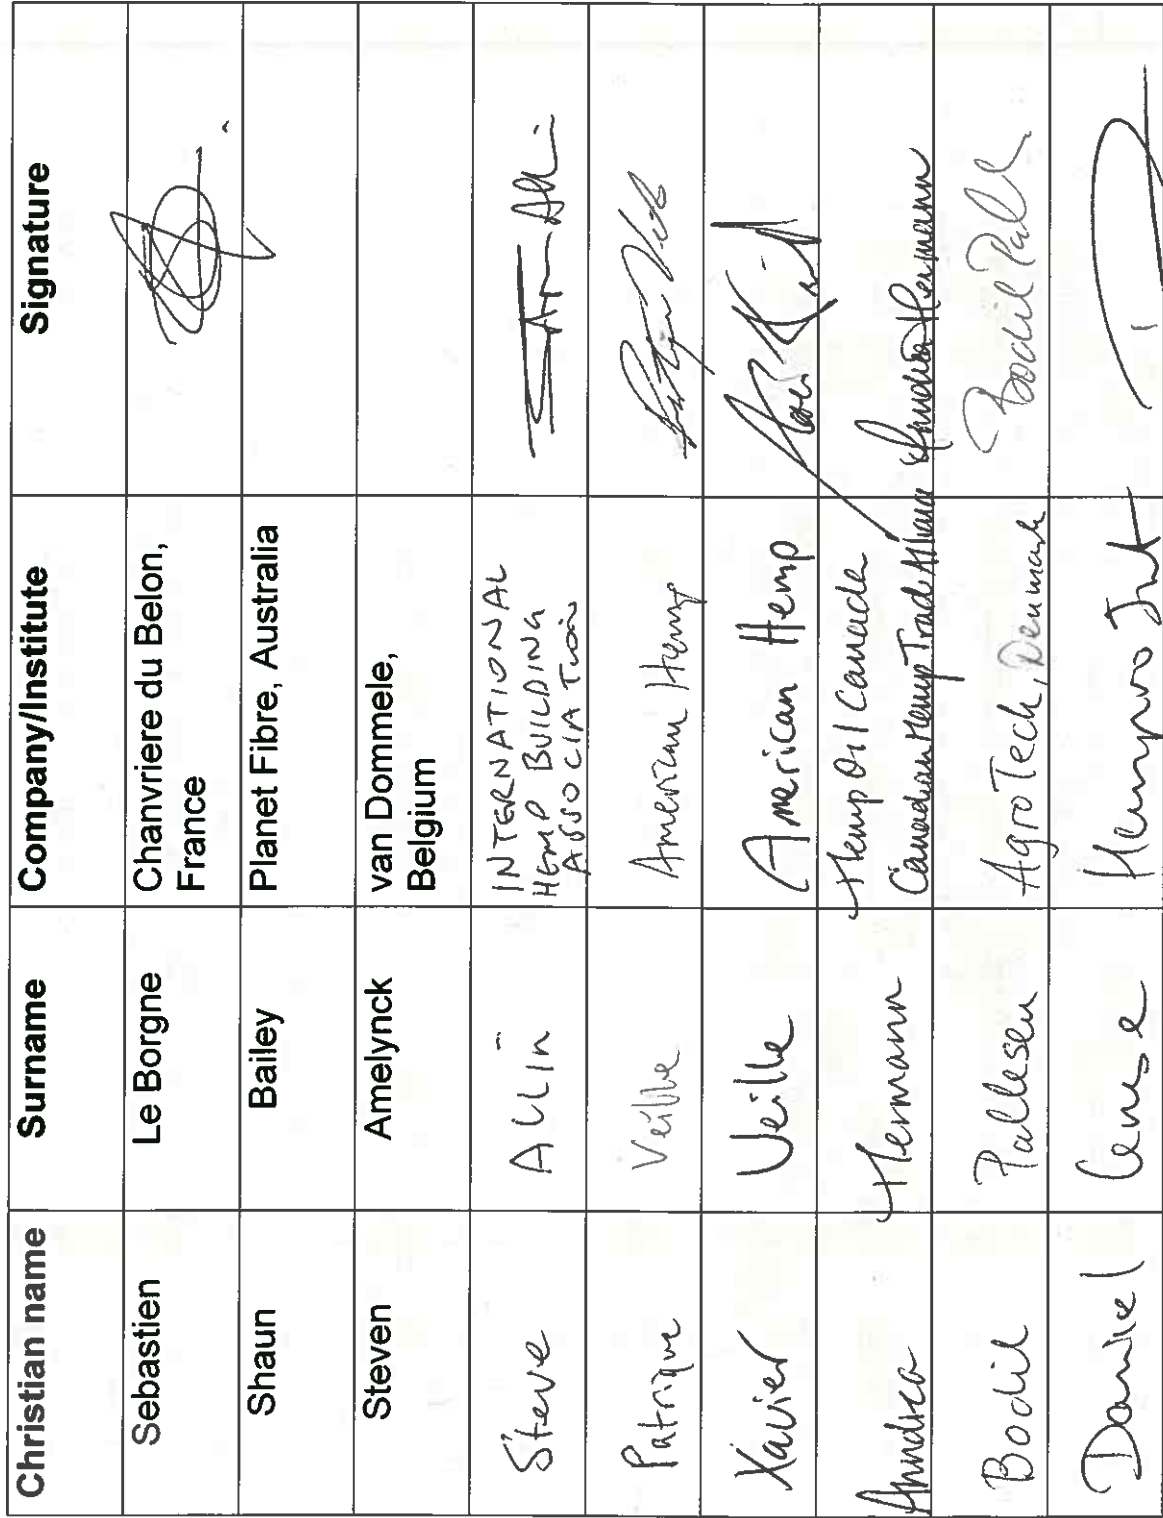 Christian name Surname Company/Institute Signature
Sebastien Le Borgne Chanvriere du Belon,
France
Shaun Bailey Planet Fibre, Australia
Steven Amelynck van Dommele,
Belgium
Steve Allin INTERNATIONAL
HEMP BUILDING
ASSOCIATION
Patrique Veille American Hemp
Xavier Veille American Hemp
Hermann Hemp Oil Canada
Canadian Hemp Trade
Bodil Pallesen AgroTech, Denmark Bodil
Daniel Hempro Int